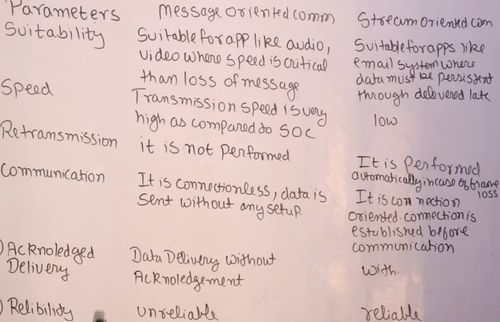 Parameters Message oriented comm Stream oriented com
Suitability Suitable for app like audio, Suitable for apps like
video where speed is critical email system where
than loss of message data must be persistent
through delevered late
Speed Transmission speed is very low
high as compared to SOC
Retransmission it is not performed It is Performed
automatically in case of frame
loss
Communication It is connectionless, data is It is connection
sent without any setup. oriented. connection is
established before
communication
) Acknoledged Data Delivery without with
Delivery Acknoledgement
) Relibility unreliable reliable